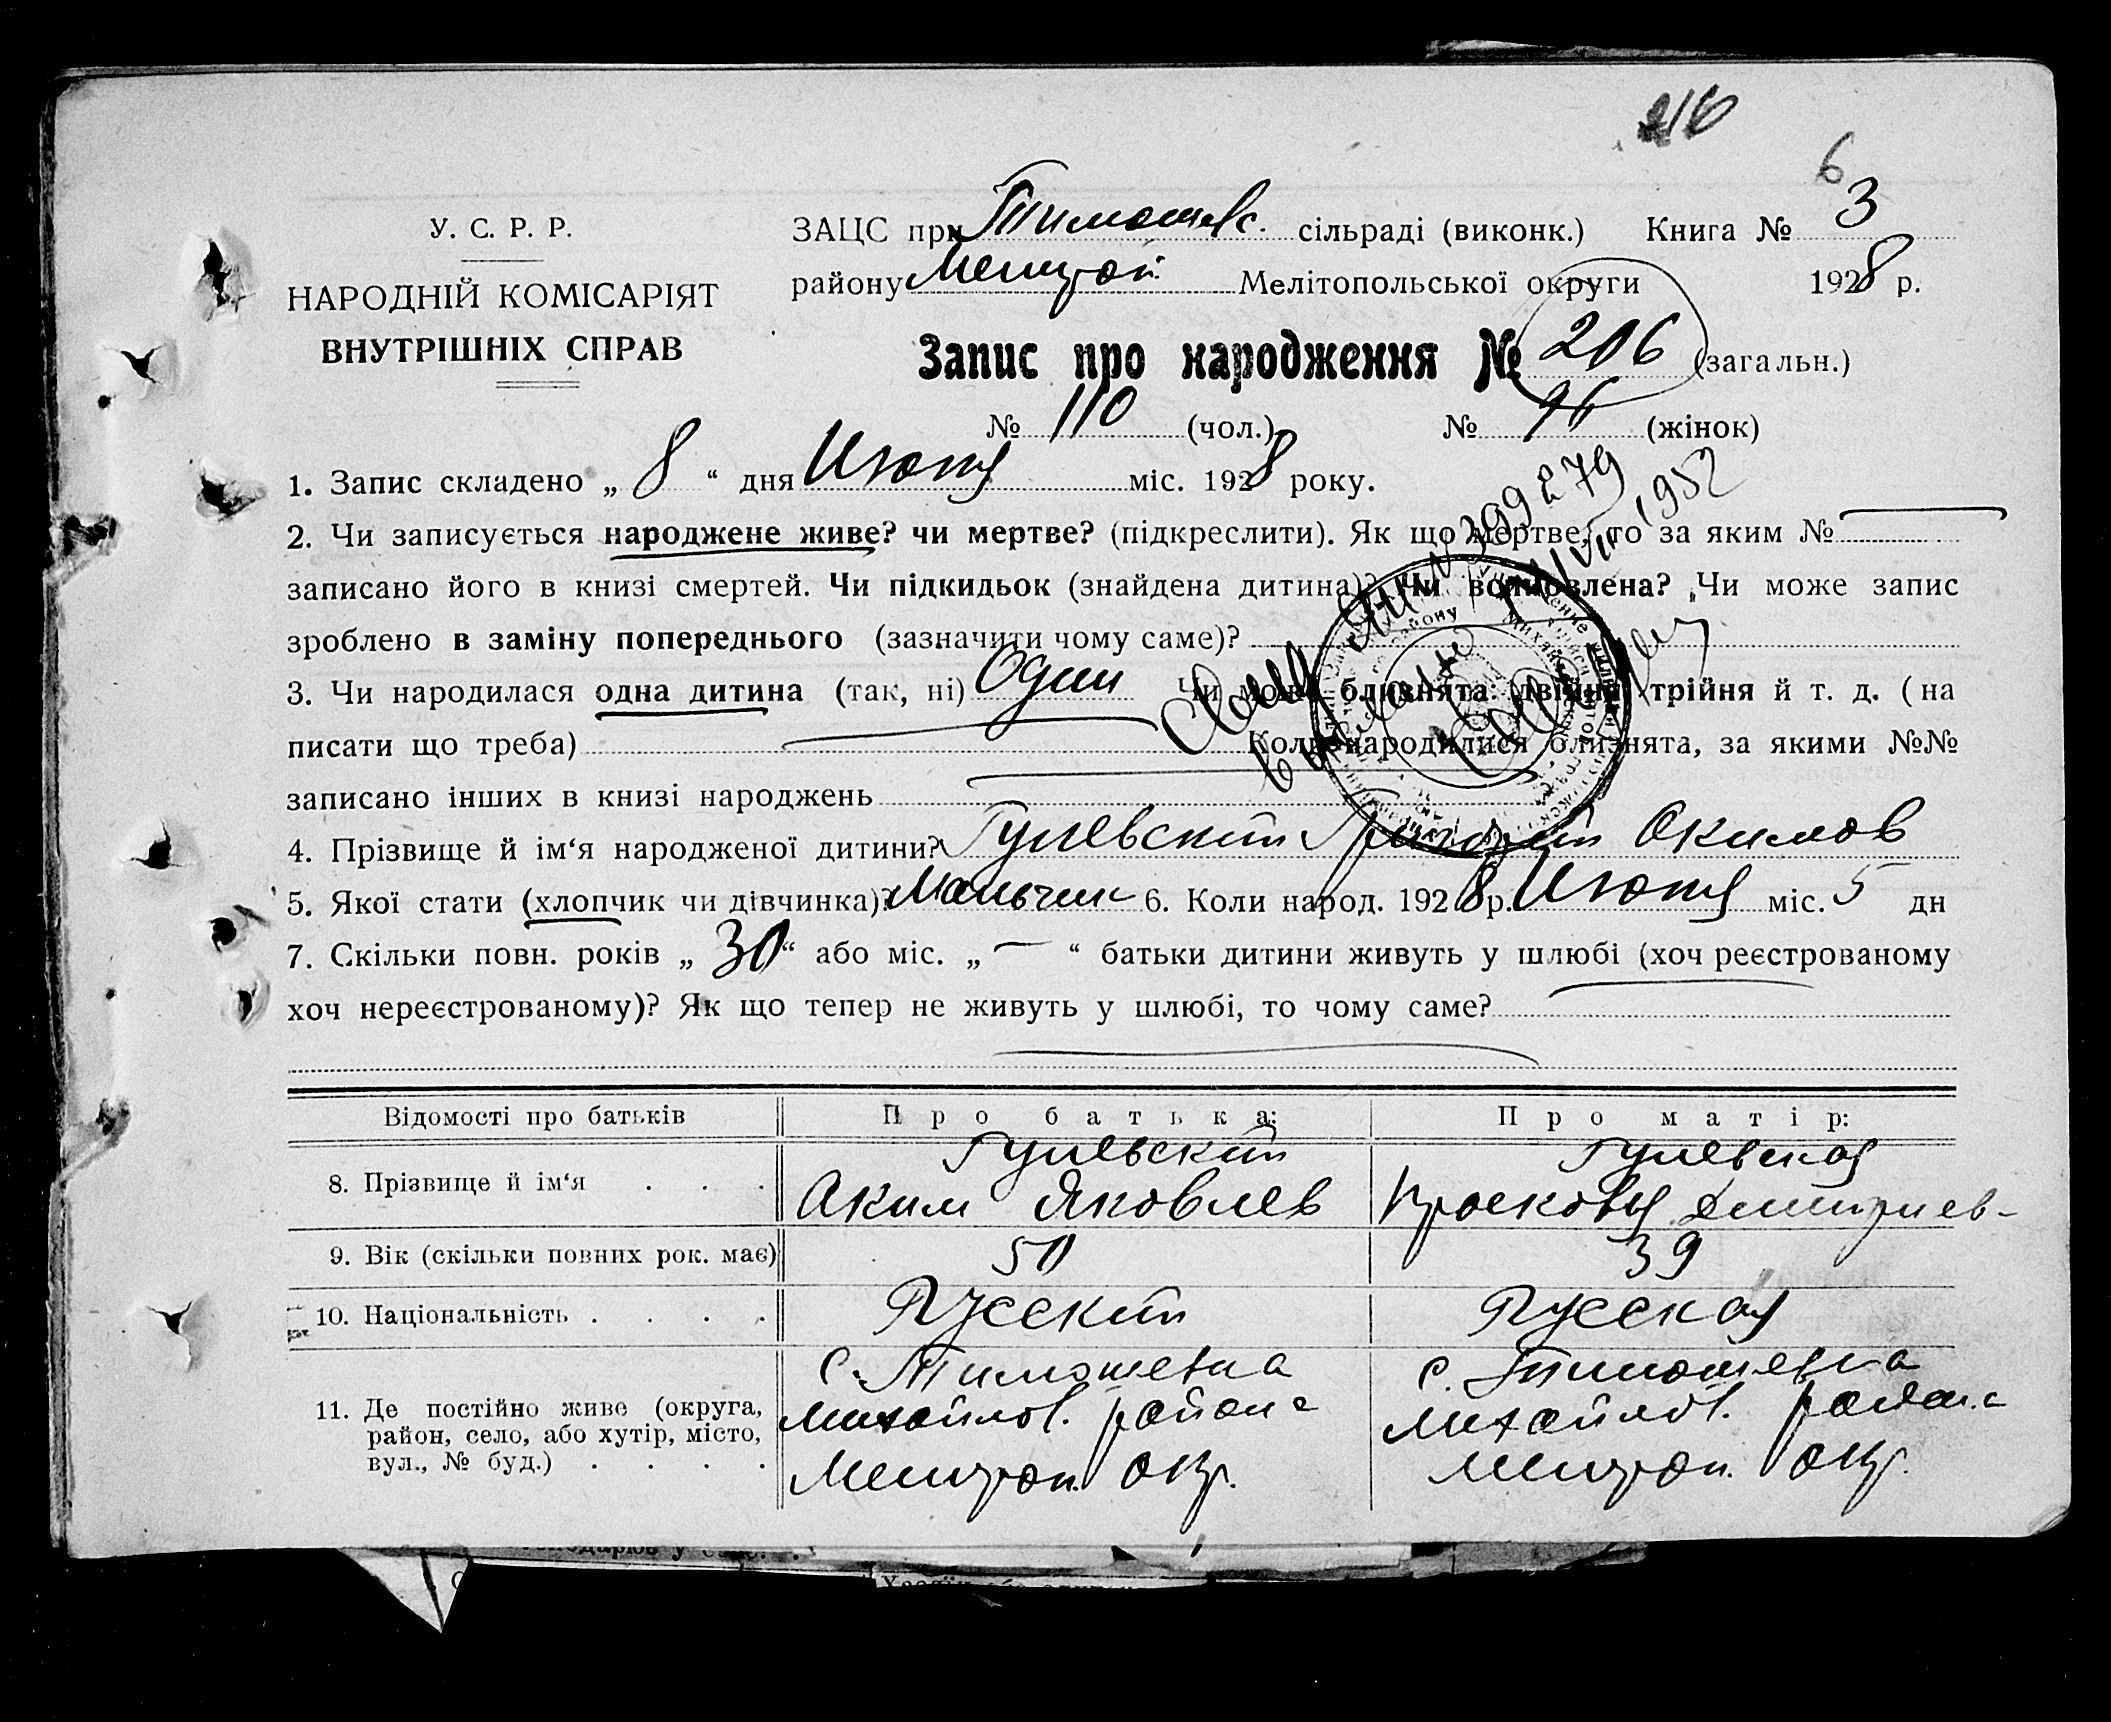 216
6
У. С. Р. Р.
НАРОДНІЙ КОМІСАРІЯТ
ВНУТРІШНІХ СПРАВ
ЗАЦС при Тимошевс. сільраді (виконк.) Книга № 3
району Мелитоп. Мелітопольської округи 1928 р.
Запис про народження № 206 (загальн.)
№ 110 (чол.) № 96 (жінок)
1. Запис складено „ 8 “ дня Июня міс. 1928 року.
2. Чи записується народжене живе? чи мертве? (підкреслити). Як що мертве, то за яким №
записано його в книзі смертей. Чи підкидьок (знайдена дитина)? Чи всиновлена? Чи може запис
зроблено в заміну попереднього (зазначити чому саме)?
3. Чи народилася одна дитина (так, ні) Один Чи може близнята: двійня, трійня й т. д. (на
писати що треба) Коли народилися близнята, за якими №№
записано інших в книзі народжень
399279
1952
4. Прізвище й ім‘я народженої дитини? Гулевский Григорий Окимов
5. Якої стати (хлопчик чи дівчинка)? Мальчик 6. Коли народ. 1928 р. Июня міс. 5 дн
7. Скільки повн. років „ 30 “ або міс. „ — “ батьки дитини живуть у шлюбі (хоч реєстрованому
хоч нереєстрованому)? Як що тепер не живуть у шлюбі, то чому саме?
Відомості про батьків Про батька: Про матір:
8. Прізвище й ім‘я . . . Гулевский Аким Яковлев Гулевская Просковья Дмитриев-
9. Вік (скільки повних рок. має) 50 39
10. Національність . . . . Русский Русская
11. Де постійно живе (округа, район, село, або хутір, місто, вул., № буд.) . . . .
с. Тимошевка
Михайлов. района
Мелитоп. окр.
с. Тимошевка
Михайлов. района
Мелитоп. окр.